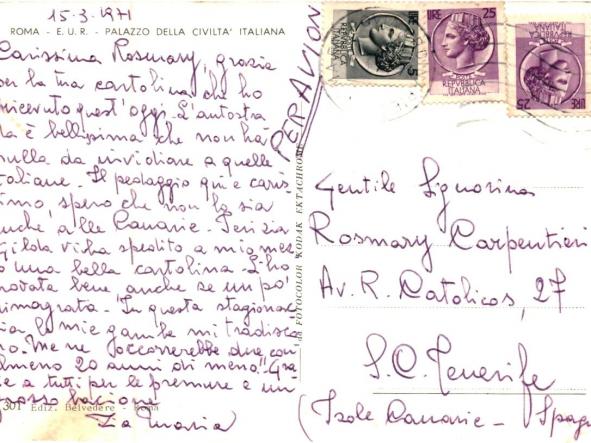 15-3-1971
ROMA - E.U.R. - PALAZZO DELLA CIVILTA' ITALIANA
Carissima Rosmary, grazie
per la tua cartolina che ho
ricevuto quest'oggi. L'autostra
da è bellissima che non ha
nulla da invidiare a quelle
italiane. Il pedaggio qui è caris
simo, spero che non lo sia
anche alle Canarie. Terizia
Gilda vi ha spedito a mio mez
zo una bella cartolina. L'ho
trovata bene anche se un po'
dimagrata. "In questa stagionac
cia le mie gambe mi tradisco
no. Me ne occorrerebbe due con
almeno 20 anni di meno". Gra
zie a tutti per le premure e un
grosso bacione
Zia Maria
301 Ediz. Belvedere - Roma
da FOTOCOLOR KODAK EKTACHROME
PER AVION
LIRE 25
POSTE
REPUBBLICA
ITALIANA
LIRE 25
POSTE
REPUBBLICA
ITALIANA
5
Gentile Signorina
Rosmary Carpentieri
Av. R. Catolicos, 27
S. C. Tenerife
(Isole Canarie - Spagn